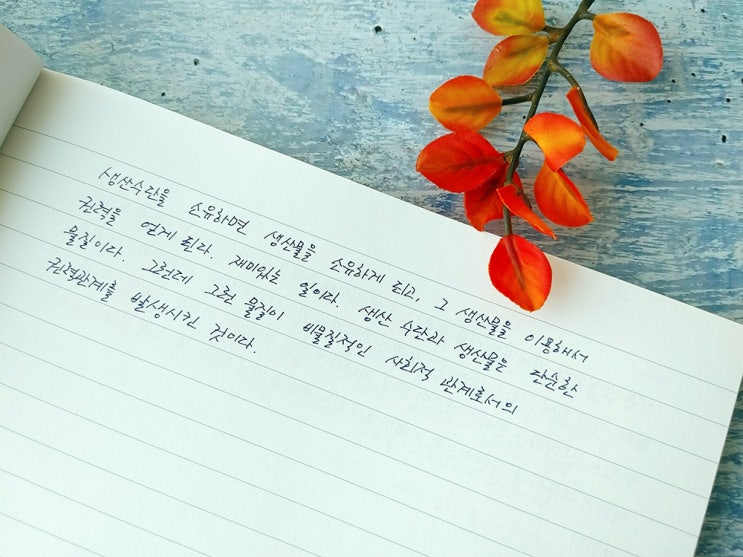 생산수단을 소유하면 생산물을 소유하게 되고, 그 생산물을 이용해서
권력을 얻게 된다. 재미있는 일이다. 생산 수단과 생산물은 단순한
물질이다. 그런데 그런 물질이 비물질적인 사회적 관계로서의
권력관계를 발생시킨 것이다.